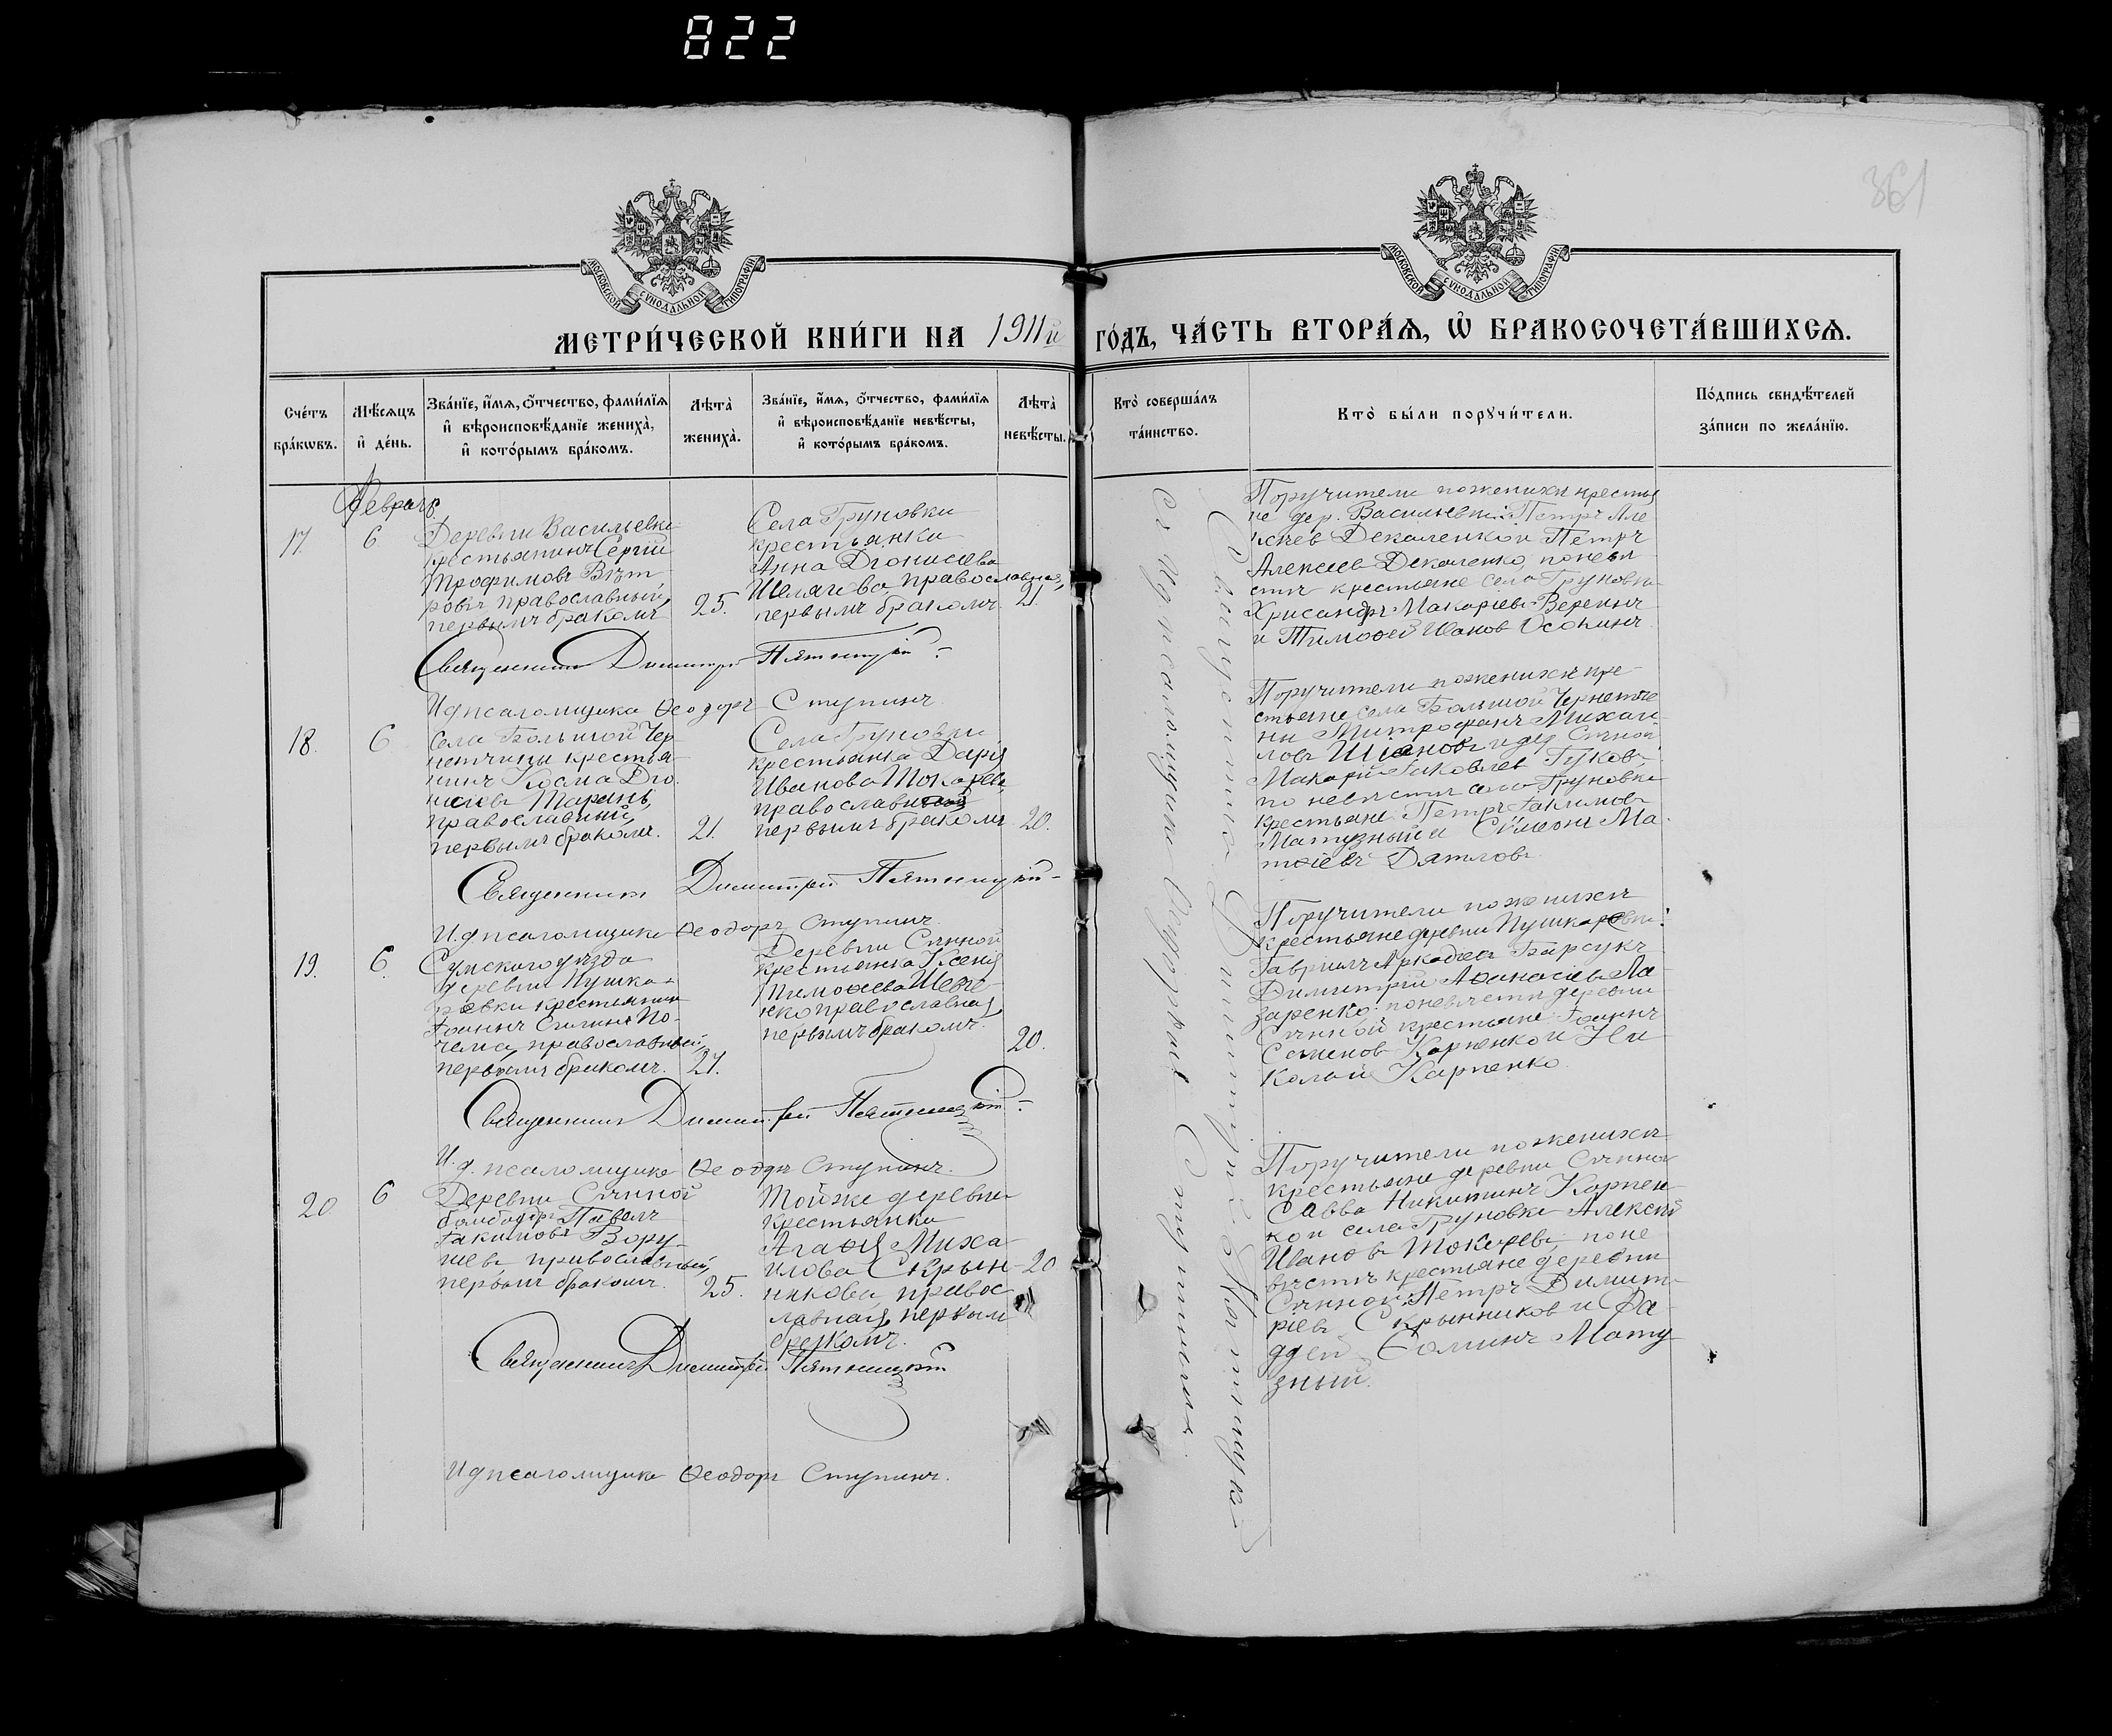 822
361
МОСКОВСКОЙ СѴНОДАЛЬНОЙ ТИПОГРАФІИ
МОСКОВСКОЙ СѴНОДАЛЬНОЙ ТИПОГРАФІИ
МЕТРИ́ЧЕСКОЙ КНИ́ГИ НА 1911й ГО́ДЪ, ЧА́СТЬ ВТОРА́Ѧ, Ѽ БРАКОСОЧЕТА́ВШИХСѦ.
Сче́тъ бра́кѡвъ.
Мѣ́сѧцъ и҆ де́нь.
Зва́нїе, и҆́мѧ, ѻ҆́тчество, фами́лїѧ
и҆ вѣроисповѣ́данїе жениха̀,
и҆ кото́рымъ бра́комъ.
Лѣта̀ жениха̀.
Зва́нїе, и҆́мѧ, ѻ҆́тчество, фами́лїѧ
и҆ вѣроисповѣ́данїе невѣ́сты,
и҆ кото́рымъ бра́комъ.
Лѣта̀ невѣ́сты.
Кто̀ соверша́лъ та́инство.
Кто̀ бы́ли порꙋчи́тели.
По́дпись свидѣ́телей за́писи по жела́нїю.
Февраль
17. 6
Деревни Васильевки
крестьянинъ Сергій
Трофимовъ Вѣт
ровъ православный,
первымъ бракомъ
25.
Села Груновки
крестьянка
Анна Діонисіева
Шелягова, православная,
первымъ бракомъ.
21.
Поручители по женихѣ крестья
не дер. Васильевки: Петръ Але
ксѣев Декаленко и Петръ
Алексіев Декаленко, по невѣ
стѣ крестьяне села Груновки
Хрисанфъ Макаріев Веренинъ
и Тимоѳей Иванов Осокинъ.
Священникъ Димитрій Пятницкій
И д псаломщика Ѳеодоръ Ступинъ.
18. 6
Села Большой Чер
нетчины крестья
нинъ Косма Діо
нисіевъ Тарань,
православный,
первымъ бракомъ.
21.
Села Груновки
крестьянка Дарія
Иванова Токарева
православная
первымъ бракомъ
20.
Поручители по женихѣ кре
стьяне села Большой Чернетчи
ны Митрофанъ Михаи
ловъ и дер. Сѣнной
Макарій Іаковлев
по невѣстѣ села Груновки
крестьяне Петръ Іакимовъ
Матузный и Сѵмеонъ Ма
тѳіевъ Дятловъ.
Священникъ Димитрій Пятницкій
И. д псаломщика Ѳеодоръ Ступинъ.
19. 6.
Сумского уѣзда
деревни Пушка
ревки крестьянин
Іоаннъ
православный,
первымъ бракомъ.
21.
Деревни Сѣнной
крестьянка Ксенія
Тимоѳеева Шевче
нко православная,
первымъ бракомъ.
20.
Поручители по женихѣ
крестьяне деревни Пушкаревки:
Гавріилъ Аркадіев Барсукъ
Димитрій Аѳанасіевъ Ла
заренко. по невѣстѣ деревни
Сѣнной крестьяне Іоаннъ
Семенов Карпенко и Ни
колай Карпенко.
Священникъ Димитрій Пятницкій
И. д. псаломщика Ѳеодоръ Ступинъ.
20 6
Деревни Сѣнной
бомбодиръ Павелъ
Іакимовъ Вору
шевъ православный,
первымъ бракомъ.
25.
Той же деревни
крестьянка
Агаѳія Миха
илова Скрын
никова, правос
лавная, первым
бракомъ.
20
Поручители по женихѣ
крестьяне деревни Сѣнной
Савва Никитинъ Карпен
ко и села Груновки Алексій
Иванов Токаревъ по не
вѣстѣ крестьяне деревни
Сѣнной: Петръ Димит
ріевъ Скрынников и Ѳа
ддей Ѳоминъ Мату
зный.
Священникъ Димитрій Пятницкій
И д псаломщика Ѳеодоръ Ступинъ.
Священникъ Димитрій Пятницкій
съ и д псаломщика Ѳеодоромъ Ступинымъ.